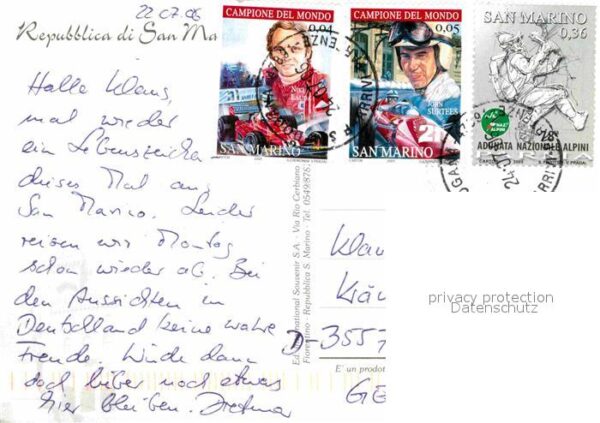 22.07.06
Repubblica di San Ma
Hallo Klaus,
mal wieder
ein Lebenszeichen
dieses Mal aus
San Marino. Leider
reisen wir Montag
schon wieder ab. Bei
den Aussichten in
Deutschland keine wahre
Freude. Würde dann
doch lieber noch etwas
hier bleiben. Dietmar
CAMPIONE DEL MONDO
0,04
Niki
SAN MARINO
CAMPIONE DEL MONDO
0,05
JOHN SURTEES
SAN MARINO
SAN MARINO
0,36
78ª
ADUNATA NAZIONALE ALPINI
Ed. International Souvenir S.A. - Via Rio Cerbiano
Fiorentino - Repubblica S. Marino - Tel. 0549/875
Klau
D-3557
E' un prodot
GE
privacy protection
Datenschutz